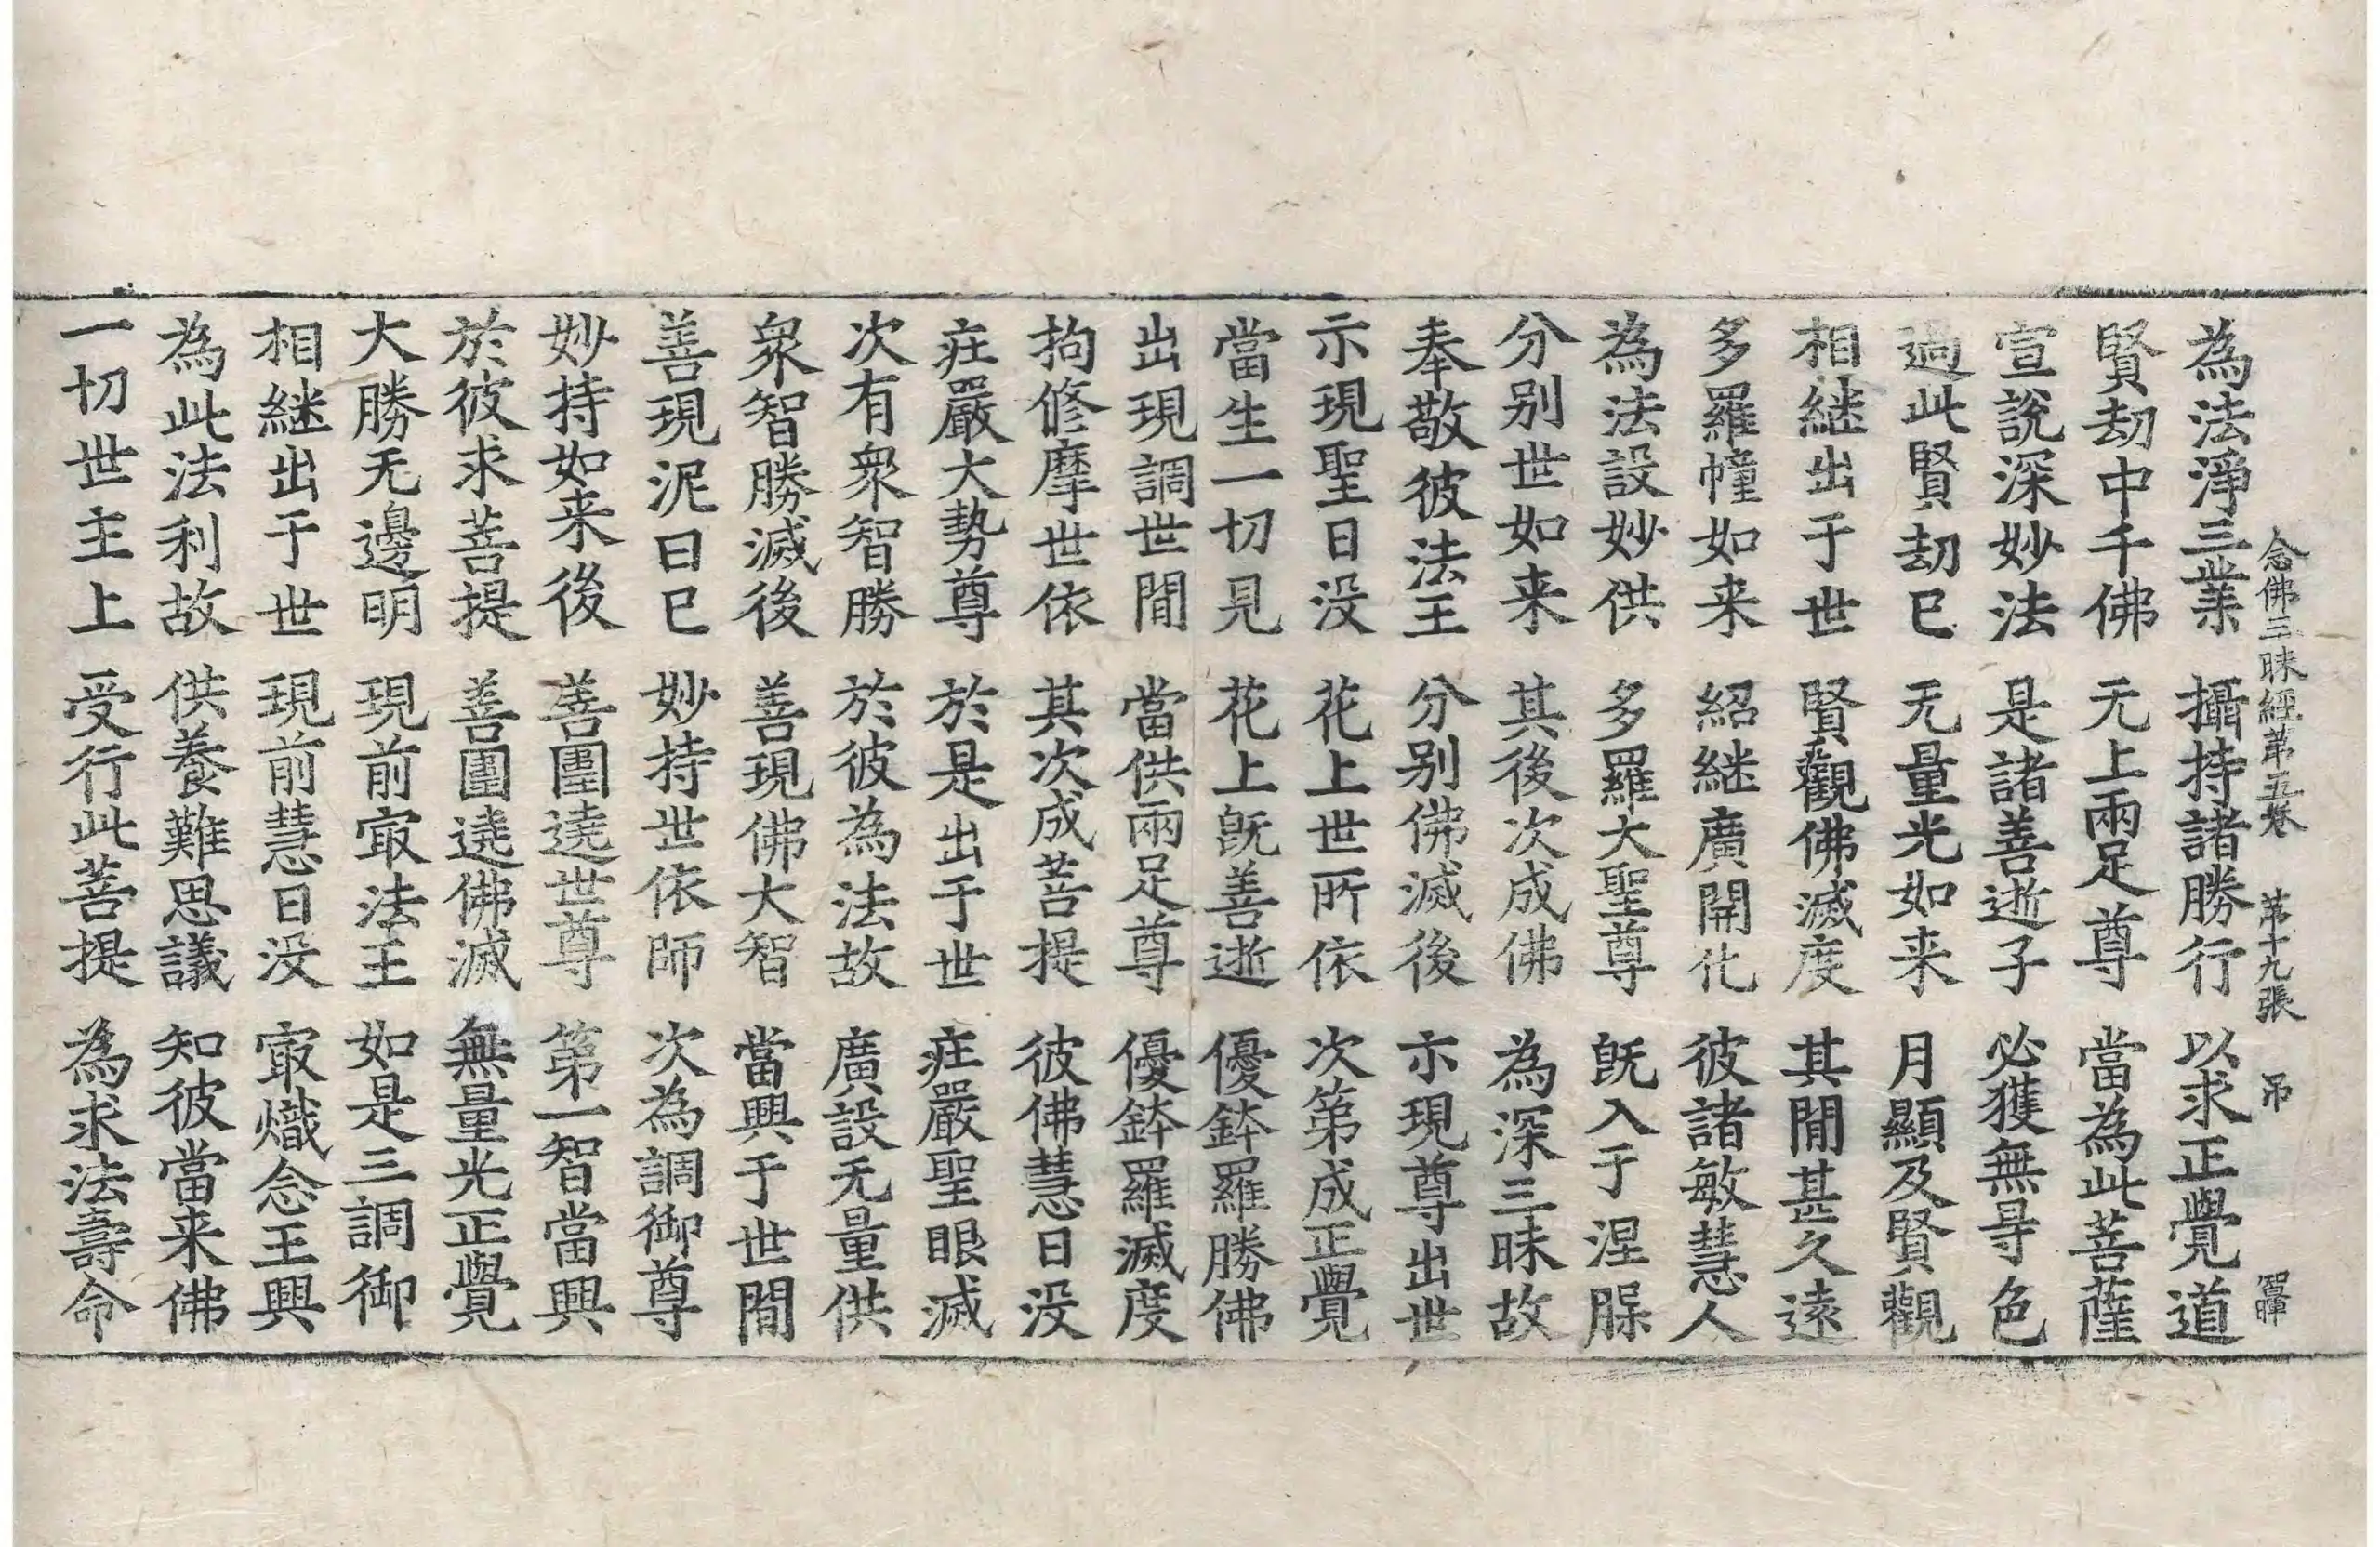 念佛三昧經第五卷 第十九張 弔 智暉
為法淨三業 攝持諸勝行 以求正覺道
賢劫中千佛 无上兩足尊 當為此菩薩
宣說深妙法 是諸善逝子 必獲無㝵色
過此賢劫已 无量光如来 月顯及賢觀
相継出于世 賢觀佛滅度 其間甚久遠
多羅幢如来 紹継廣開化 彼諸敏慧人
為法設妙供 多羅大聖尊 旣入于涅脵
分別世如来 其後次成佛 為深三昧故
奉敬彼法王 分別佛滅後 示現尊出世
示現聖日没 花上世所依 次第成正覺
當生一切見 花上旣善逝 優鉢羅勝佛
出現調世間 當供兩足尊 優鉢羅滅度
拘修摩世依 其次成菩提 彼佛慧日没
莊嚴大勢尊 於是出于世 莊嚴聖眼滅
次有衆智勝 於彼為法故 廣設无量供
衆智勝滅後 善現佛大智 當興于世間
善現泥曰已 妙持世依師 次為調御尊
妙持如来後 善圍遶世尊 第一智當興
於彼求菩提 善圍遶佛滅 無量光正覺
大勝无邊明 現前㝡法王 如是三調御
相継出于世 現前慧日没 㝡熾念王興
為此法利故 供養難思議 知彼當来佛
一切世主上 受行此菩提 為求法壽命